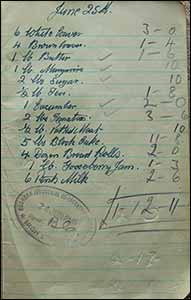 June 25th.
6 White Loaves 3 - 0
4 Brown loaves 1 - 4
1 lb Butter 1 -
1 lb Margarine 10
2 lbs Sugar 10
½ lb Tea 8
1 Cucumber 2 - 0
2 lbs Tomatoes 3 6
½ lb Potted Meat 10
5 lbs Block Cake 11 - 8
4 Dozen Bread Rolls 2 - 6
1 lb Gooseberry Jam 1 - 3
6 Pints Milk 2 - 6
1-12-11